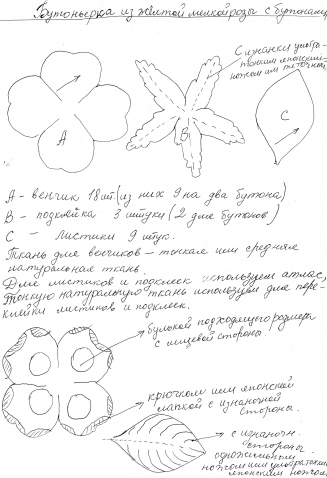 Бутоньерка из жёлтой мелкой розы с бутонами
С изнанки ультра-
тонким японским
ножом им теточной
A
B
C
А - венчик 18 шт. (из них 9 на два бутона)
В - подклейка 3 штуки (2 для бутонов)
С - листики 9 штук.
Ткань для венчиков - тонкая или средняя
натуральная ткань.
Для листиков и подклеек используем атлас,
тонкую натуральную ткань используем для пере-
клейки листиков и подклеек.
булькой подходящего размера
с лицевой стороны
крючком или японской
лапкой с изнаночной
стороны.
с изнаночн.
стороны
одножильным
ножом или ультратонким
японским ножом